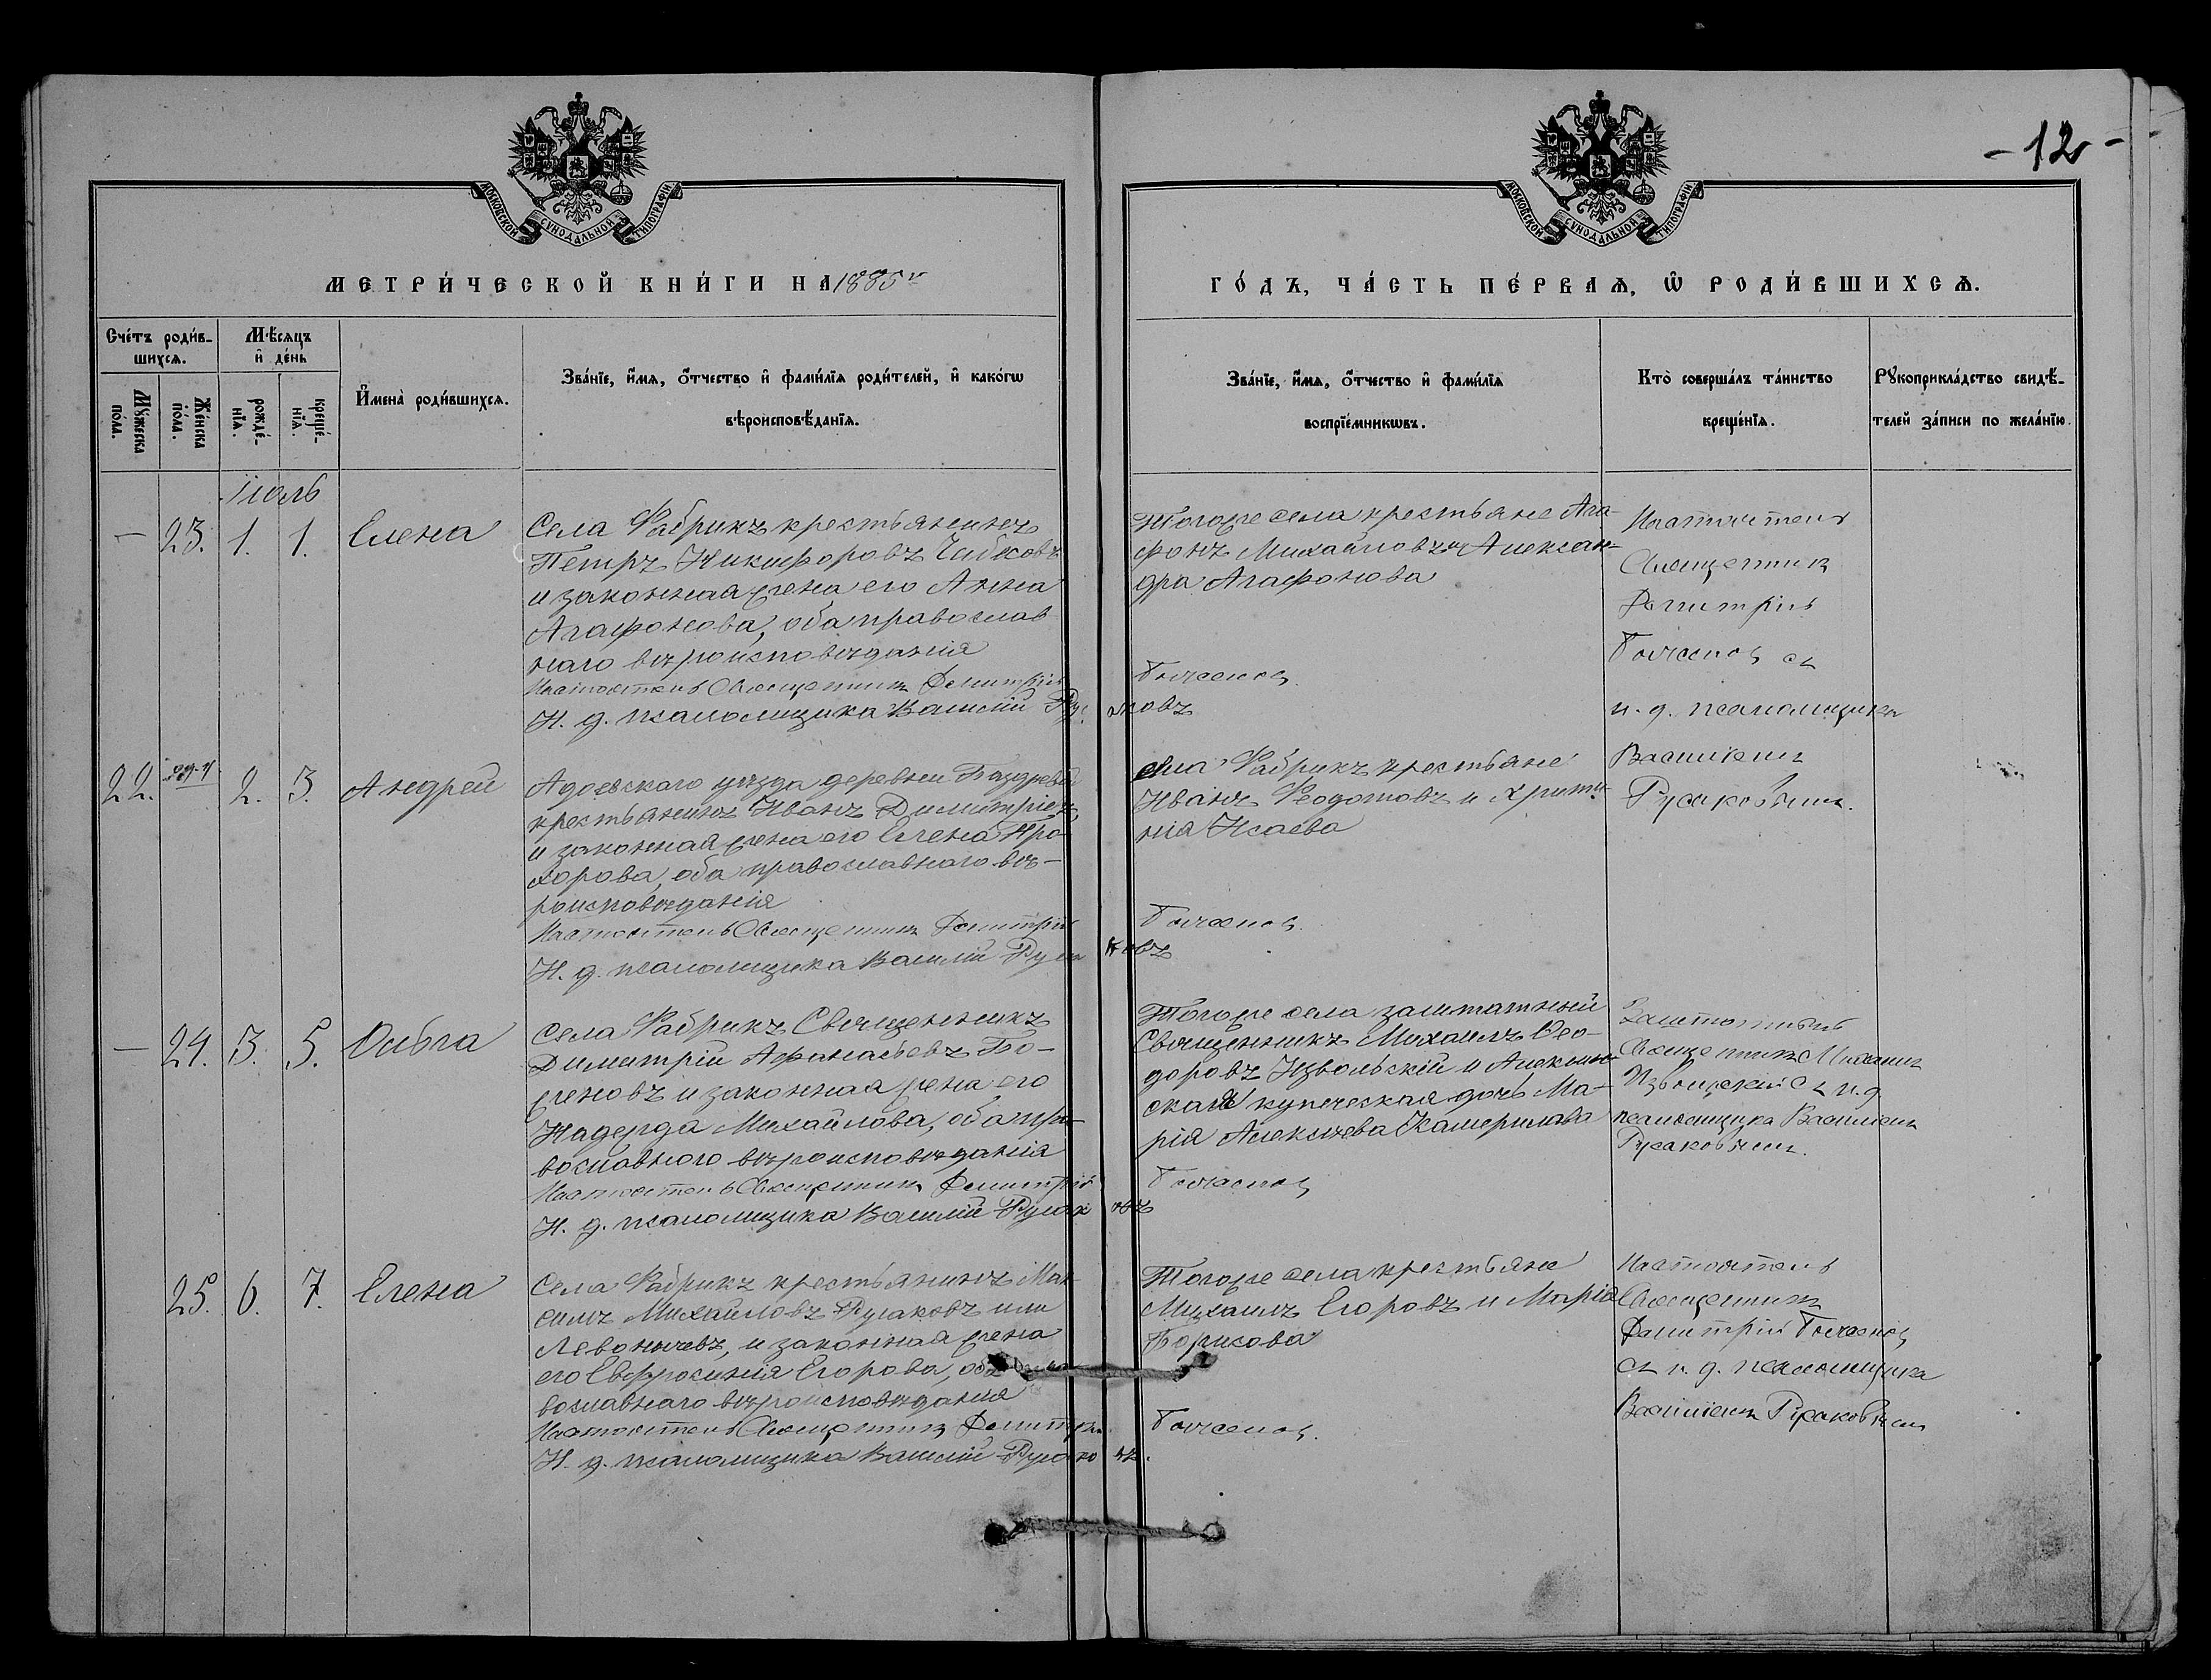 - 12 -
МОСКОВСКОЙ СѴНОДАЛЬНОЙ ТИПОГРАФІИ
МОСКОВСКОЙ СѴНОДАЛЬНОЙ ТИПОГРАФІИ
МЕТРИ́ЧЕСКОЙ КНИ́ГИ НА 1885
ГО́ДЪ, ЧА́СТЬ ПЕ́РВАѦ, Ѡ҆ РОДИ́ВШИХСѦ.
Сче́тъ роди́в-
шихсѧ.
Мꙋ́жеска по́ла.
Же́нска по́ла.
Мѣ́сѧцъ
и҆ де́нь
рожде́-
нїѧ.
креще́-
нїѧ.
И҆мена̀ роди́вшихсѧ.
Зва́нїе, и҆́мѧ, ѻ҆́тчество и҆ фами́лїѧ роди́телей, и҆ како́гѡ
вѣроисповѣ́данїѧ.
Зва́нїе, и҆́мѧ, ѻ҆́тчество и҆ фами́лїѧ
воспрїе́мникѡвъ.
Кто̀ соверша́лъ та́инство
креще́нїѧ.
Рꙋкоприкла́дство свидѣ́-
телей за́писи по жела́нїю.
Іюль
— 23. 1. 1. Елена
Села Фабрикъ крестьянинъ
Петръ Никифоровъ
и законная жена его Анна
Агафонова, оба православ
наго вѣроисповѣданія
Настоятель Священникъ Димитрій
Н. д. псаломщика Василій Русаковъ
Тогоже села крестьяне Ага-
фонъ Михайловъ и Алексан-
дра Агафонова
Боженов
Настоятель
Священник
Димитрій
Боженов съ
и. д. псаломщика
Василіемъ
Русаковымъ.
22. 2. 3. Андрей
Адоевскаго уѣзда деревни
крестьянинъ Иванъ Димитріевъ
и законная жена его Елена Про-
хорова, оба православнаго вѣ-
роисповѣданія
Настоятель Священникъ Димитрій
Н. д. псаломщика Василій Русаковъ
села Фабрикъ крестьяне
Иванъ Ѳеодотовъ и Христи-
нія Исаева
Боженов
— 24. 3. 5. Ольга
Села Фабрикъ Священникъ
Димитрій Афанасьевъ Бо-
женовъ и законная жена его
Надежда Михайлова, оба пра-
вославнаго вѣроисповѣданія
Настоятель Священникъ Димитрій
Н. д. псаломщика Василій Русаковъ
Тогоже села заштатный
Священникъ Михаилъ Ѳео-
доровъ Извольскій и Алексин-
ская купеческая дочь Ма-
рія Алексѣева
Боженов
Заштатный
Священникъ Михаил
Извольскій съ и. д.
псаломщика Василіем
Русаковымъ.
25. 6. 7. Елена
Села Фабрикъ крестьянинъ Мак-
симъ Михайловъ Русаковъ или
Левонычевъ, и законная жена
его Евфросинія Егорова, оба
вославнаго вѣроисповѣданія
Настоятель Священникъ Димитрій
Н. д. псаломщика Василій Русаковъ.
Тогоже села крестьяне
Михаилъ Егоровъ и Марія
Борисова
Боженов.
Настоятель
Священникъ
Димитрій Боженов
съ и. д. псаломщика
Василіемъ Русаковымъ